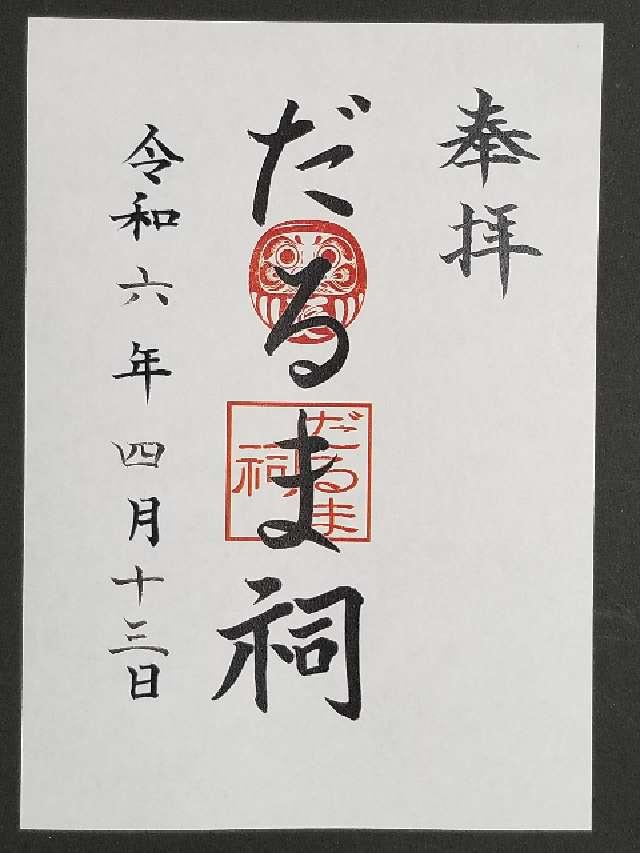 奉拝
だるま祠
だるま
祠
令和六年四月十三日